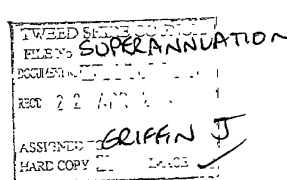 TWEED SHIRE COUNCIL
FILE No SUPERANNUATION
DOCUMENT No
RECD 22 APR
ASSIGNED TO GRIFFIN J
HARD COPY IMAGE ✓